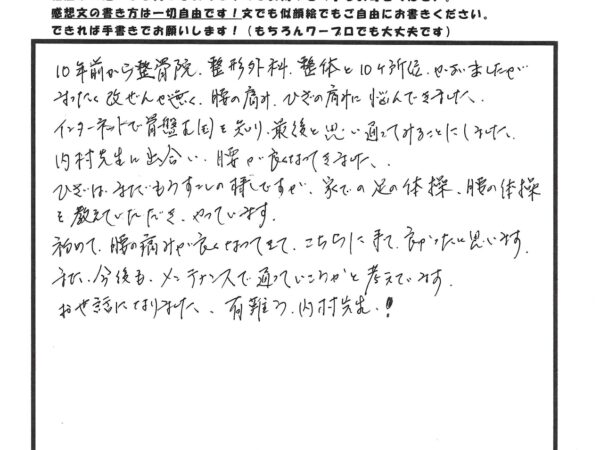 感想文の書き方は一切自由です！文でも似顔絵でもご自由にお書きください。
できれば手書きでお願いします！（もちろんワープロでも大丈夫です）
10年前から整骨院、整形外科、整体と10ヶ所位、かかりましたが
まったく改ぜんや無く、腰の痛み、ひざの痛みに悩んできました、
インターネットで骨盤王国を知り、最後と思い通ってみることにしました、
内村先生に出合い、腰が良くなってきました、
ひざは、まだもう少しの様ですが、家での足の体操、腰の体操
を教えていただき、やっています。
初めて、腰の痛みが良くなってきて、こちらに来て、良かったと思います。
また、今後も、メンテナンスで通っていこうかと考えています。
お世話になりました、有難う、内村先生、！